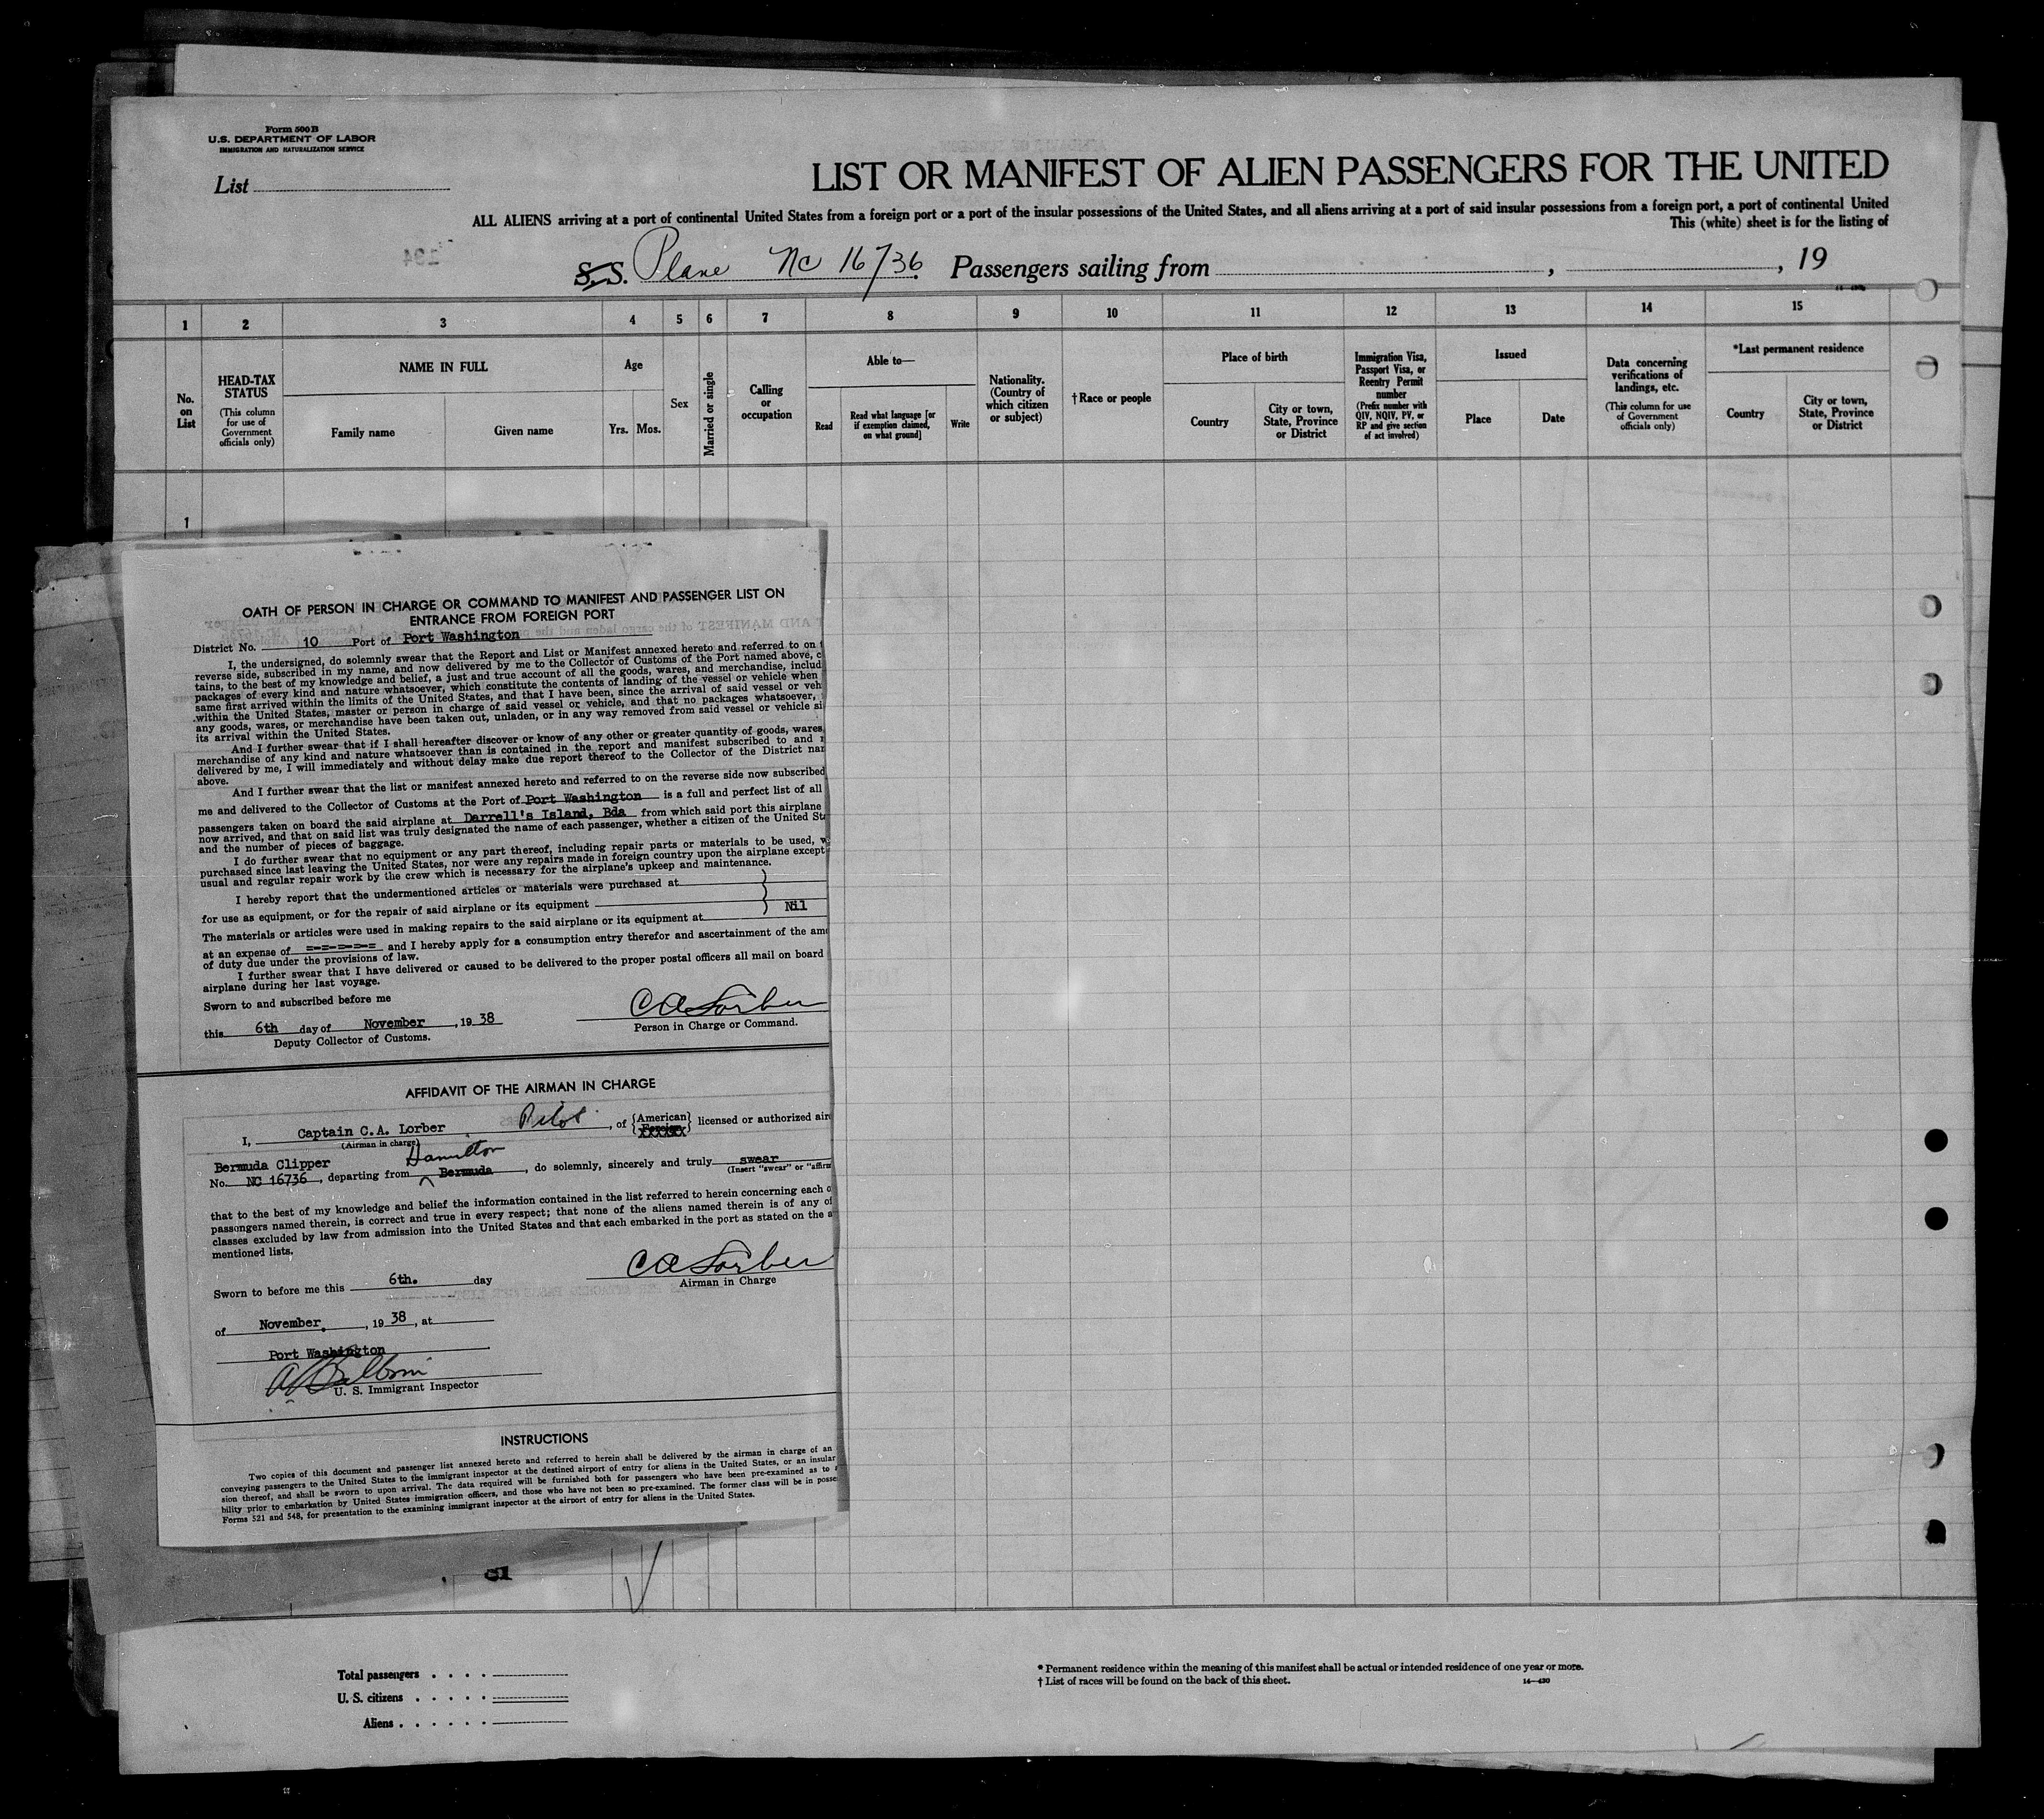 Form 500 B
U.S. DEPARTMENT OF LABOR
IMMIGRATION AND NATURALIZATION SERVICE
List
LIST OR MANIFEST OF ALIEN PASSENGERS FOR THE UNITED
ALL ALIENS arriving at a port of continental United States from a foreign port or a port of the insular possessions of the United States, and all aliens arriving at a port of said insular possessions from a foreign port, a port of continental United
This (white) sheet is for the listing of
194
S.S. Plane NC 16736 Passengers sailing from , , 19
1 2 3 4 5 6 7 8 9 10 11 12 13 14 15
No. on List
HEAD-TAX STATUS
(This column for use of Government officials only)
NAME IN FULL
Family name
Given name
Age
Yrs. Mos.
Sex
Married or single
Calling or occupation
Able to—
Read
Read what language [or if exemption claimed, on what ground]
Write
Nationality. (Country of which citizen or subject)
† Race or people
Place of birth
Country
City or town, State, Province or District
Immigration Visa, Passport Visa, or Reentry Permit number
(Prefix number with QIV, NQIV, PV, or RP and give section of act involved)
Issued
Place
Date
Data concerning verifications of landings, etc.
(This column for use of Government officials only)
*Last permanent residence
Country
City or town, State, Province or District
1
OATH OF PERSON IN CHARGE OR COMMAND TO MANIFEST AND PASSENGER LIST ON
ENTRANCE FROM FOREIGN PORT
District No. 10 Port of Port Washington
I, the undersigned, do solemnly swear that the Report and List or Manifest annexed hereto and referred to on
reverse side, subscribed in my name, and now delivered by me to the Collector of Customs of the Port named above, c
tains, to the best of my knowledge and belief, a just and true account of all the goods, wares, and merchandise, includ
packages of every kind and nature whatsoever, which constitute the contents of landing of the vessel or vehicle when
same first arrived within the limits of the United States, and that I have been, since the arrival of said vessel or veh
within the United States, master or person in charge of said vessel or vehicle, and that no packages whatsoever,
any goods, wares, or merchandise have been taken out, unladen, or in any way removed from said vessel or vehicle si
its arrival within the United States.
And I further swear that if I shall hereafter discover or know of any other or greater quantity of goods, wares,
merchandise of any kind and nature whatsoever than is contained in the report and manifest subscribed to and
delivered by me, I will immediately and without delay make due report thereof to the Collector of the District nar
above.
And I further swear that the list or manifest annexed hereto and referred to on the reverse side now subscribed
me and delivered to the Collector of Customs at the Port of Port Washington is a full and perfect list of all
passengers taken on board the said airplane at Darrell's Island, Bda from which said port this airplane
now arrived, and that on said list was truly designated the name of each passenger, whether a citizen of the United Sta
and the number of pieces of baggage.
I do further swear that no equipment or any part thereof, including repair parts or materials to be used, w
purchased since last leaving the United States, nor were any repairs made in foreign country upon the airplane except
usual and regular repair work by the crew which is necessary for the airplane's upkeep and maintenance.
I hereby report that the undermentioned articles or materials were purchased at
for use as equipment, or for the repair of said airplane or its equipment Nil
The materials or articles were used in making repairs to the said airplane or its equipment at
at an expense of =-=-=-=-= and I hereby apply for a consumption entry therefor and ascertainment of the am
of duty due under the provisions of law.
I further swear that I have delivered or caused to be delivered to the proper postal officers all mail on board
airplane during her last voyage.
Sworn to and subscribed before me
this 6th day of November , 19 38
Deputy Collector of Customs.
CA Lorber
Person in Charge or Command.
AFFIDAVIT OF THE AIRMAN IN CHARGE
I, Captain C.A. Lorber Pilot , of {American} {Foreign} licensed or authorized air
(Airman in charge)
Bermuda Clipper Hamilton
No. NC 16736 , departing from Bermuda , do solemnly, sincerely and truly swear
(Insert "swear" or "affirm
that to the best of my knowledge and belief the information contained in the list referred to herein concerning each o
passengers named therein, is correct and true in every respect; that none of the aliens named therein is of any of
classes excluded by law from admission into the United States and that each embarked in the port as stated on the a
mentioned lists.
CA Lorber
Airman in Charge
Sworn to before me this 6th. day
of November, , 19 38 , at
Port Washington
U. S. Immigrant Inspector
INSTRUCTIONS
Two copies of this document and passenger list annexed hereto and referred to herein shall be delivered by the airman in charge of an
conveying passengers to the United States to the immigrant inspector at the destined airport of entry for aliens in the United States, or an insular
sion thereof, and shall be sworn to upon arrival. The data required will be furnished both for passengers who have been pre-examined as to
bility prior to embarkation by United States immigration officers, and those who have not been so pre-examined. The former class will be in posse
Forms 521 and 548, for presentation to the examining immigrant inspector at the airport of entry for aliens in the United States.
Total passengers
U. S. citizens
Aliens
* Permanent residence within the meaning of this manifest shall be actual or intended residence of one year or more.
† List of races will be found on the back of this sheet.
14—430